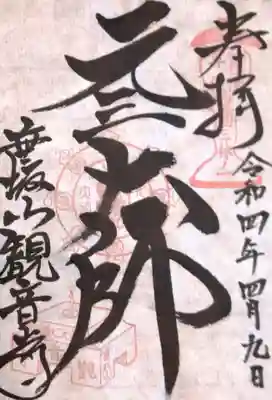 奉拝 令和四年四月九日
元三大師
坂山観音堂